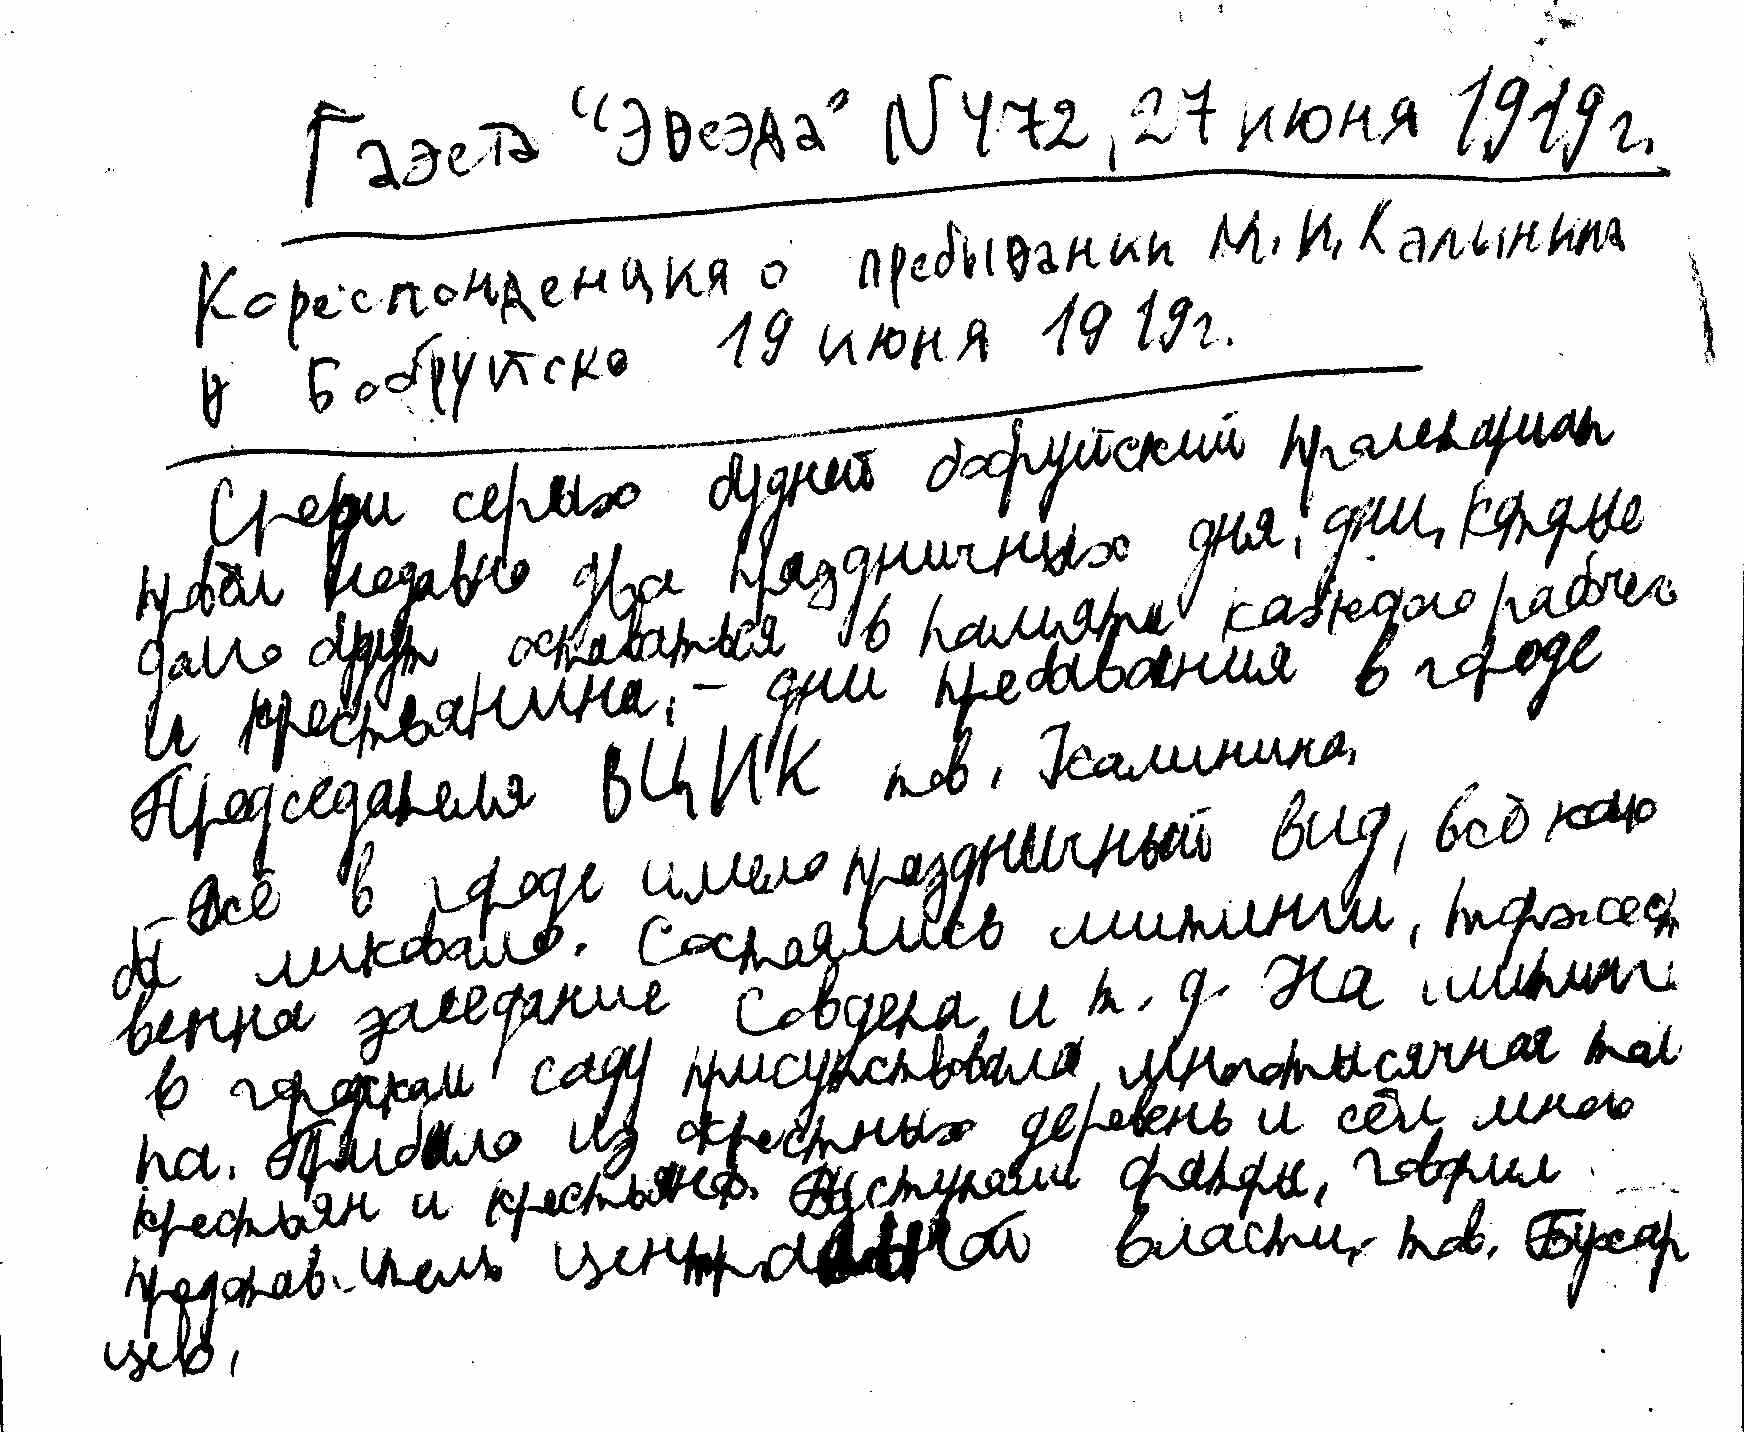 Газета "Звезда" N 472, 27 июня 1919 г.
Кореспонденция о пребывании М. И. Калынина
в Бобруйске 19 июня 1919 г.
Среди серых будней бобруйский пролетариат
провёл недавно два праздничных дня, дни, которые
долго будут оставаться в памяти каждого рабочего
и крестьянина, - дни пребывания в городе
Председателя ВЦИК тов. Калинина.
Всё в городе имело праздничный вид, всё как
бы ликовало. Состоялись митинги, торжест
венна заседание Совдепа и т. д. На митинге
в городском саду присутствовала многотысячная тол
па. Прибыло из окрестных деревень и сёл много
крестьян и крестьянок. Выступали ораторы, говорил
представ. итель центральной власти, тов. Бухар
цев.